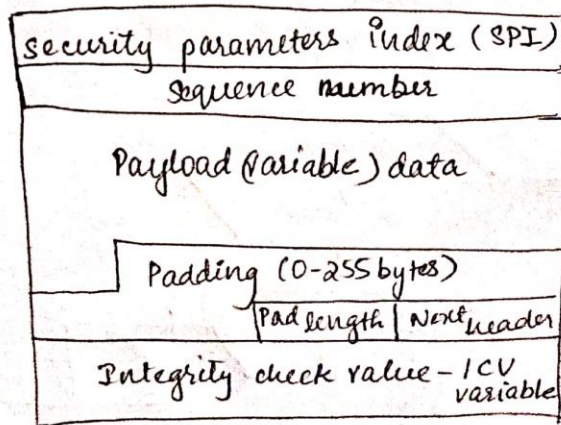 security parameters index (SPI)
Sequence number
Payload (variable) data
Padding (0-255 bytes)
Pad length | Next header
Integrity check value - ICV
variable